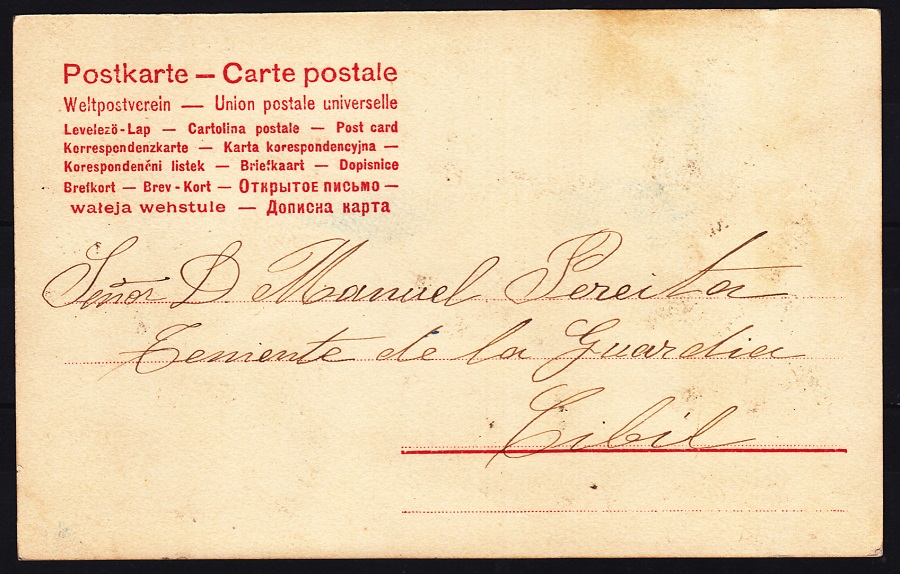 Postkarte — Carte postale
Weltpostverein — Union postale universelle
Levelező-Lap — Cartolina postale — Post card
Korrespondenzkarte — Karta korespondencyjna —
Korespondenční listek — Briefkaart — Dopisnice
Brefkort — Brev-Kort — Открытое письмо —
wałeja wehstule — Дописна карта
Señor D. Manuel Pereita
Teniente de la Guardia
Cibil